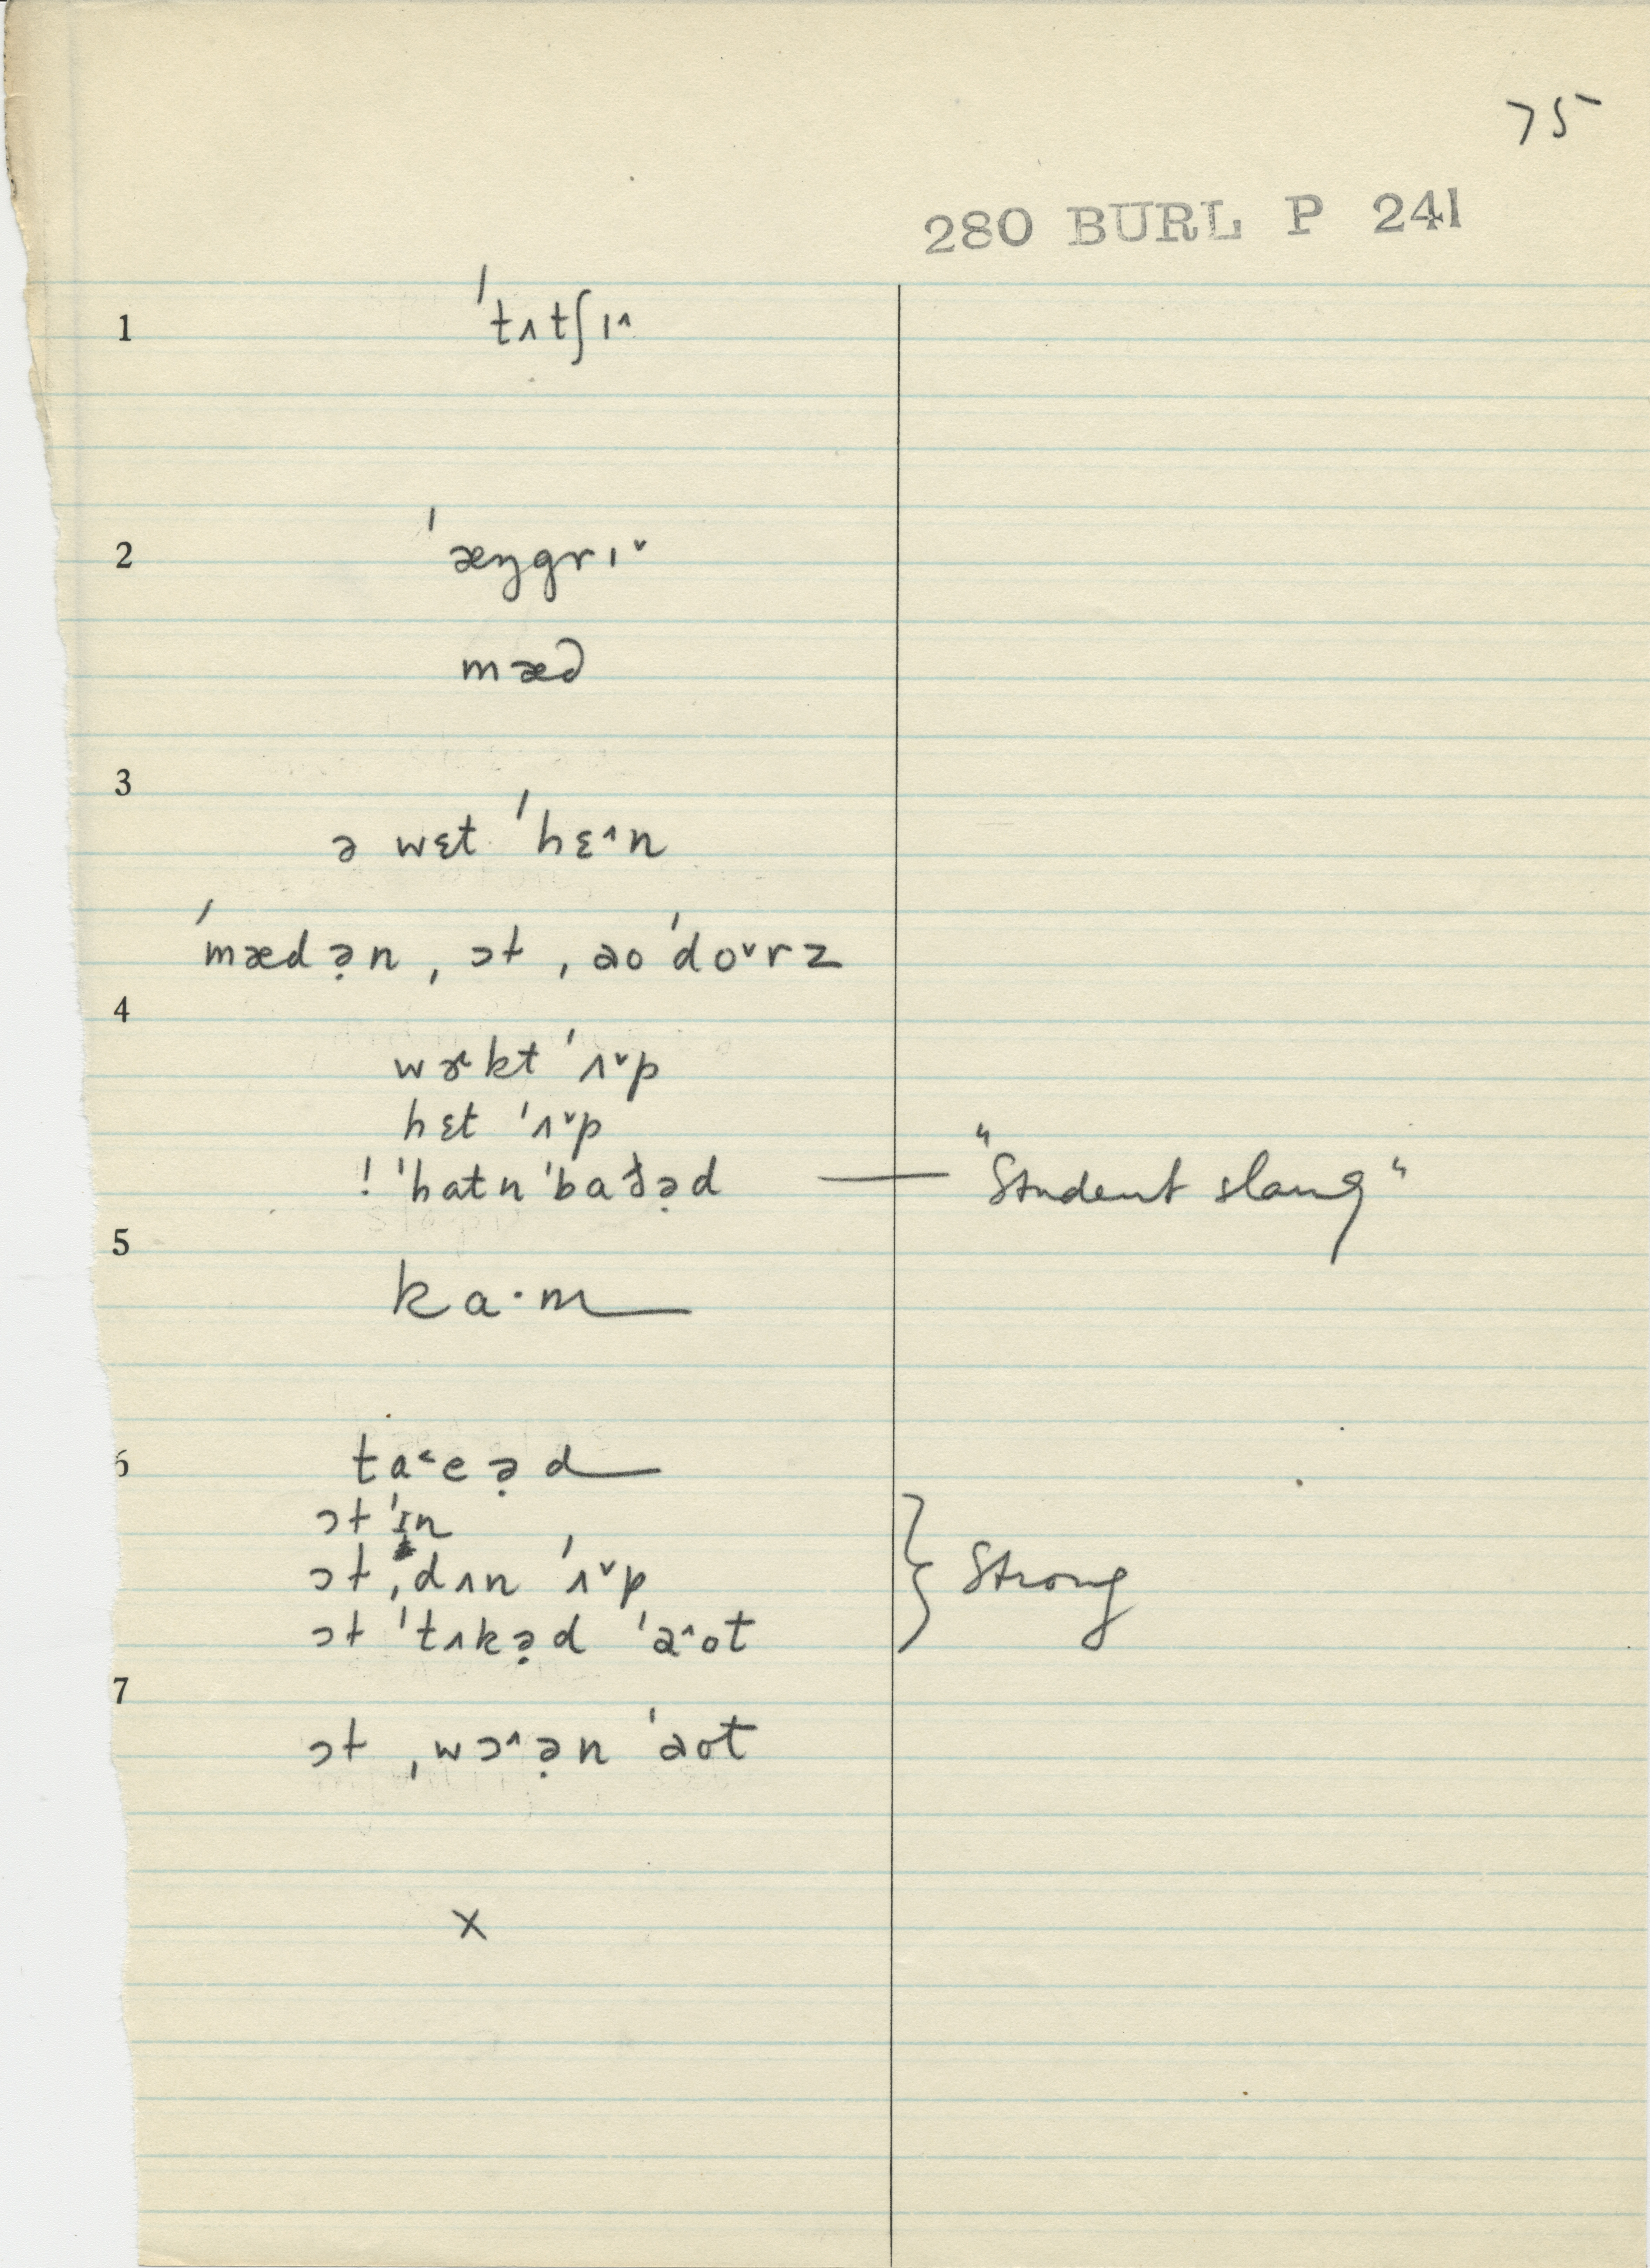 75
280 BURL P 241
1 ˈtʌtʃɪ˄
2 ˈæŋgrɪ˅
mæd
3
ə wɛt ˈhɛ˄n
ˈmædə̣n ˌɔt ˌaoˈdo˅rz
4
wɝkt ˈʌ˅p
hɛt ˈʌ˅p
! ˈhatn ˈbaðə̣d — "Student slang"
5
ka·m
6 ta˂eə̣d
ɔt ˈɪn
ɔt ˌdʌn ˈʌ˅p } Strong
ɔt ˈtʌkə̣d ˈa˄ot
7
ɔt ˌwɔ˄ə̣n ˈaot
x